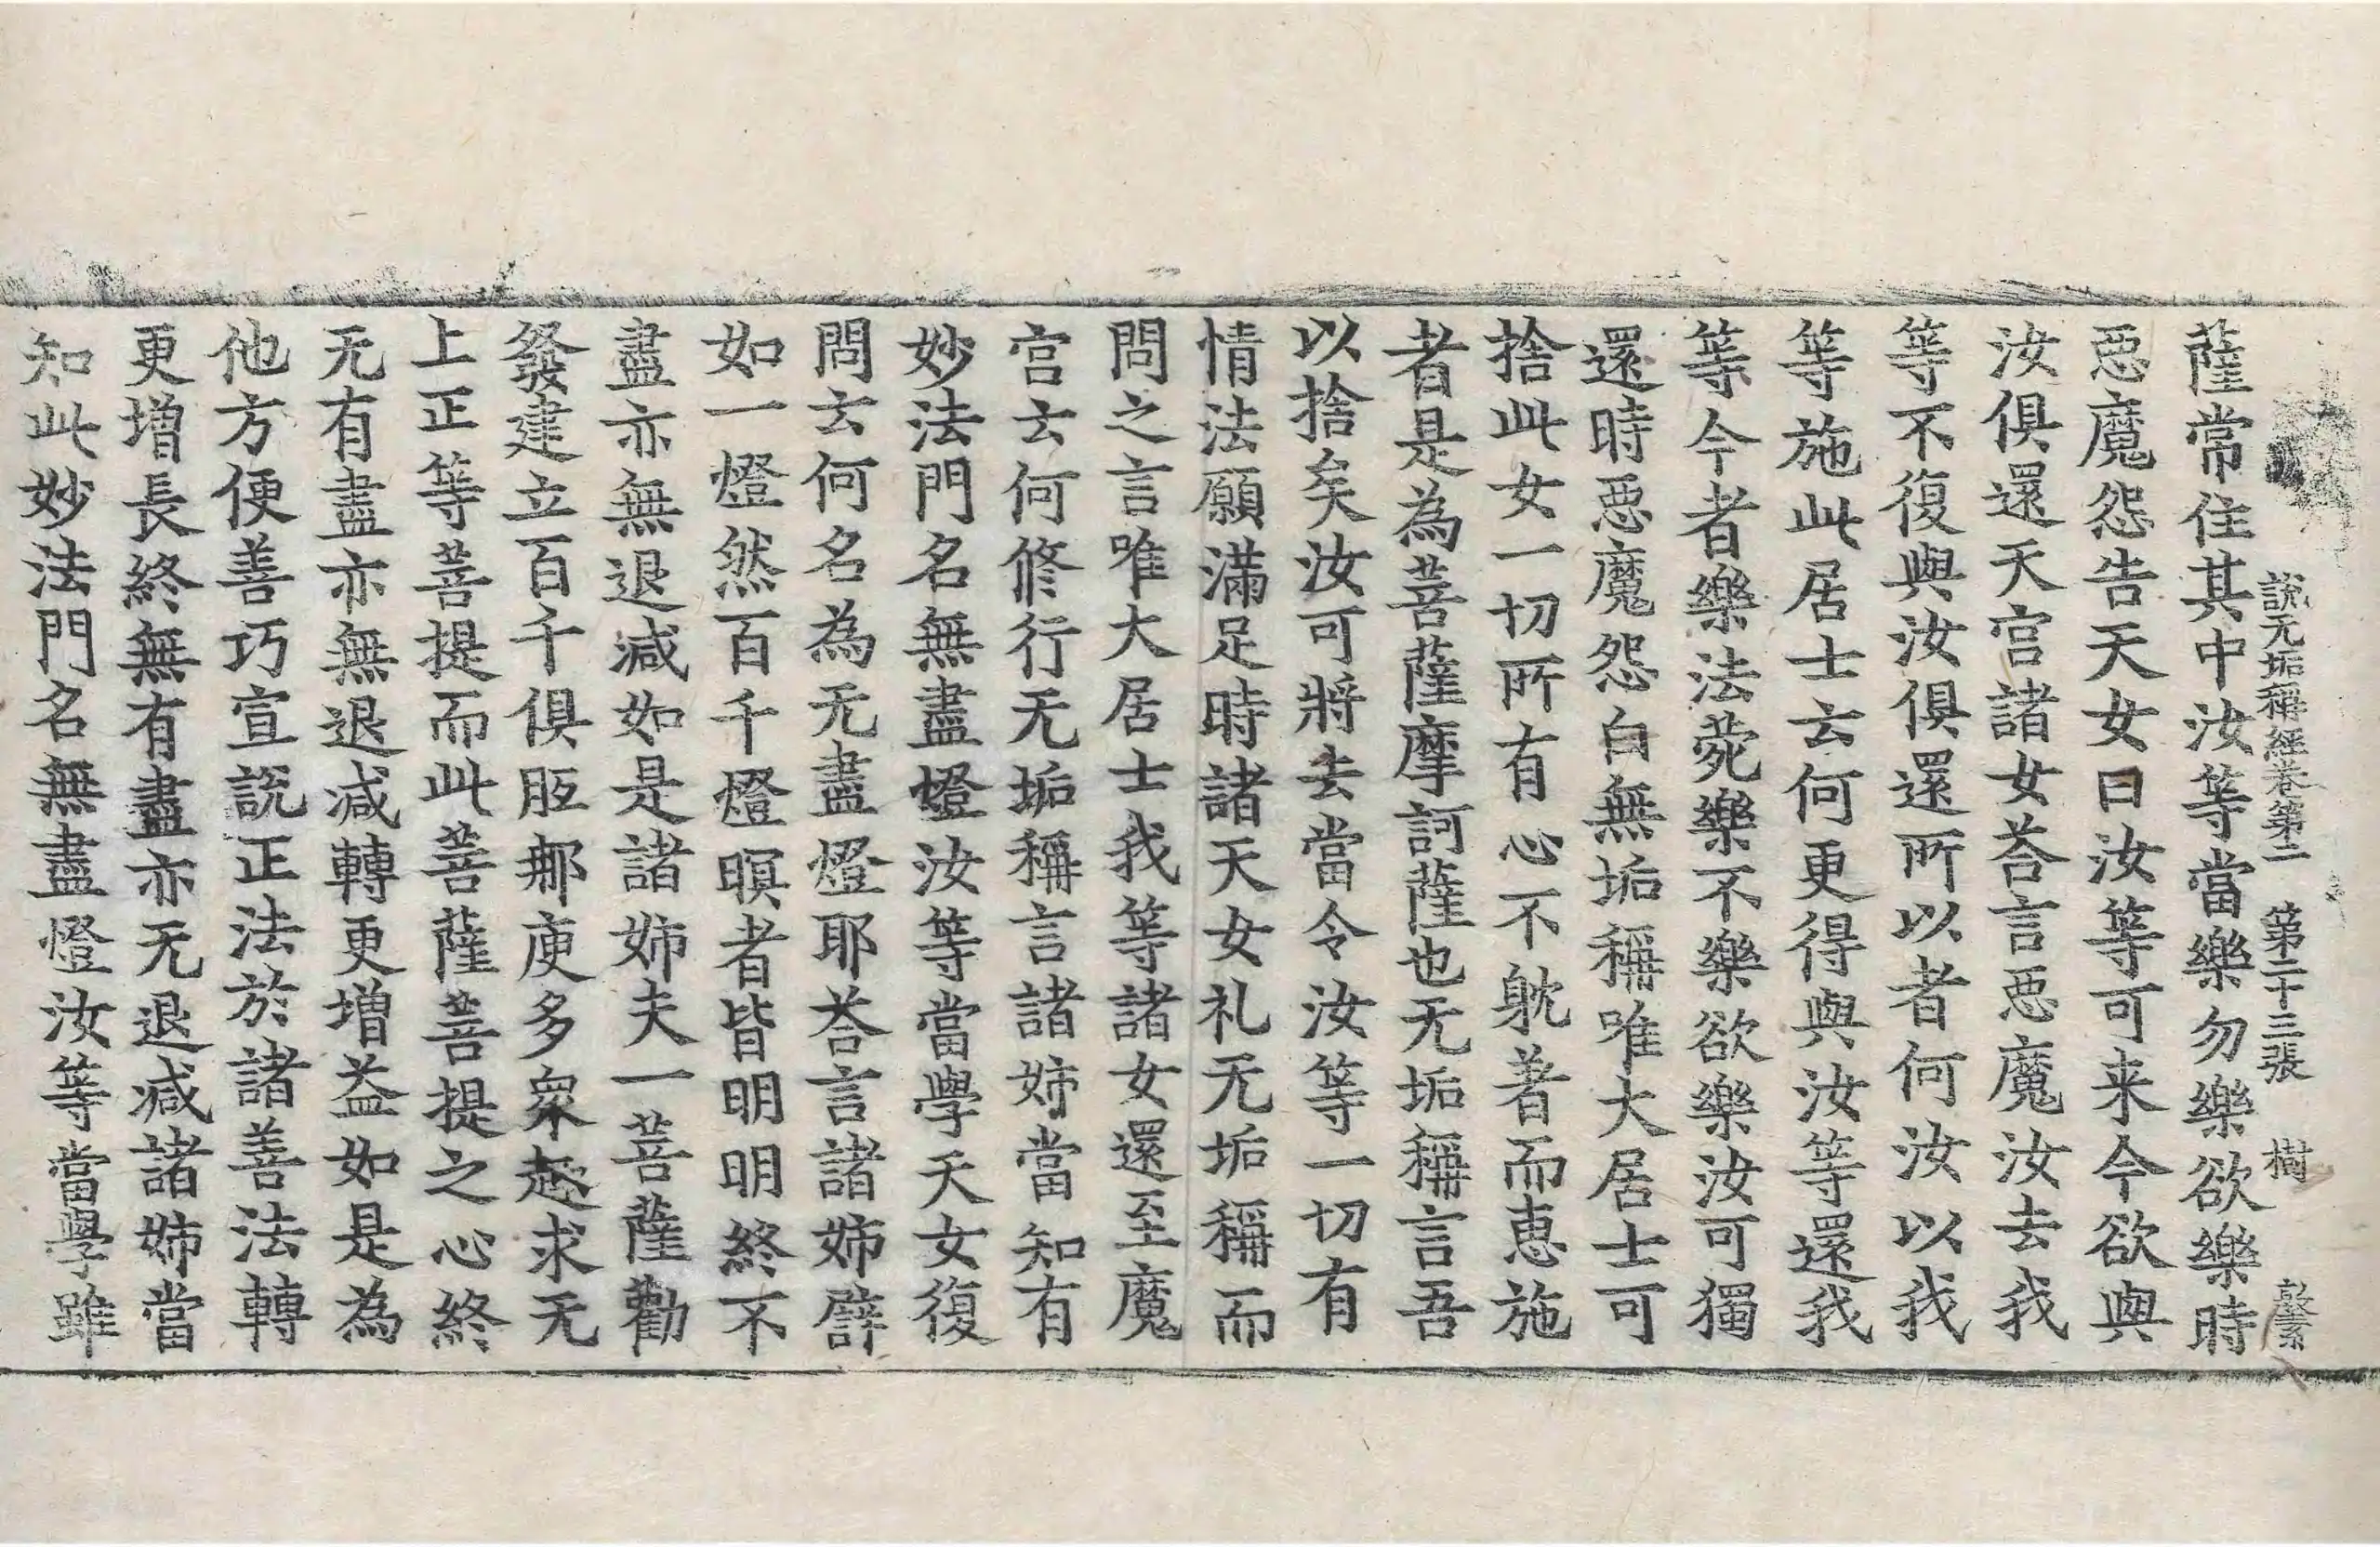 說无垢稱經卷第二 第二十三張 樹
薩常住其中汝等當樂勿樂欲樂時
惡魔怨告天女曰汝等可来今欲與
汝俱還天宮諸女荅言惡魔汝去我
等不復與汝俱還所以者何汝以我
等施此居士云何更得與汝等還我
等今者樂法菀樂不樂欲樂汝可獨
還時惡魔怨白無垢稱唯大居士可
捨此女一切所有心不躭著而恵施
者是為菩薩摩訶薩也无垢稱言吾
以捨矣汝可將去當令汝等一切有
情法願滿足時諸天女礼无垢稱而
問之言唯大居士我等諸女還至魔
宮云何修行无垢稱言諸姉當知有
妙法門名無盡燈汝等當學天女復
問云何名為无盡燈耶荅言諸姉譬
如一燈然百千燈暝者皆明明終不
盡亦無退減如是諸姉夫一菩薩勸
發建立百千俱胝那庾多衆趣求无
上正等菩提而此菩薩菩提之心終
无有盡亦無退減轉更增益如是為
他方便善巧宣說正法於諸善法轉
更增長終無有盡亦无退減諸姉當
知此妙法門名無盡燈汝等當學雖